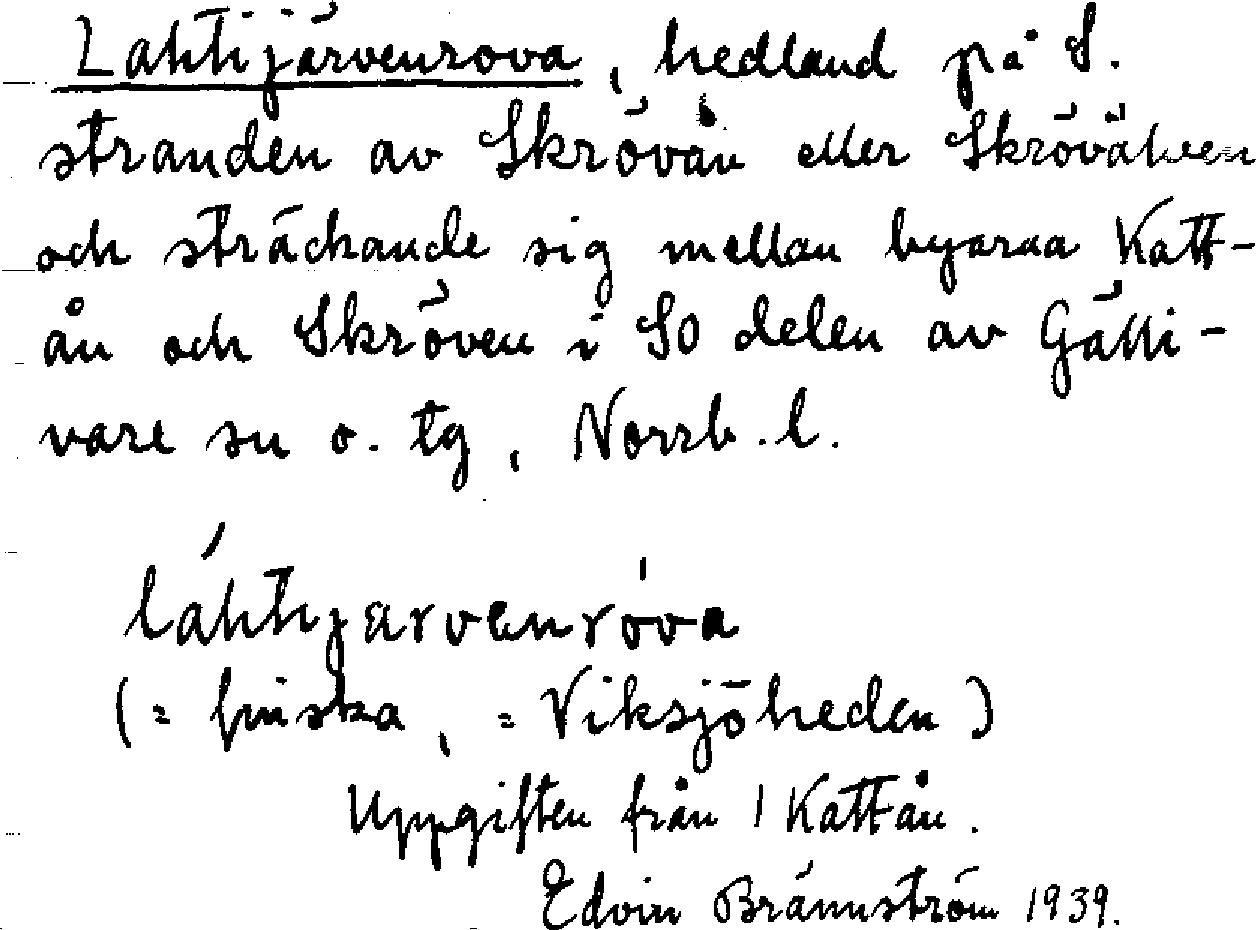 Lahtijärvenrova, hedland på S.
stranden av Skrövån eller Skrövälven
och sträckande sig mellan byarna Katt-
ån och Skröven i SO delen av Gälli-
vare sn o. tg, Norrb. l.
láhtijärvenróva
(= finska, = Viksjöheden)
Uppgiften från 1 Kattån.
Edvin Brännström 1939.